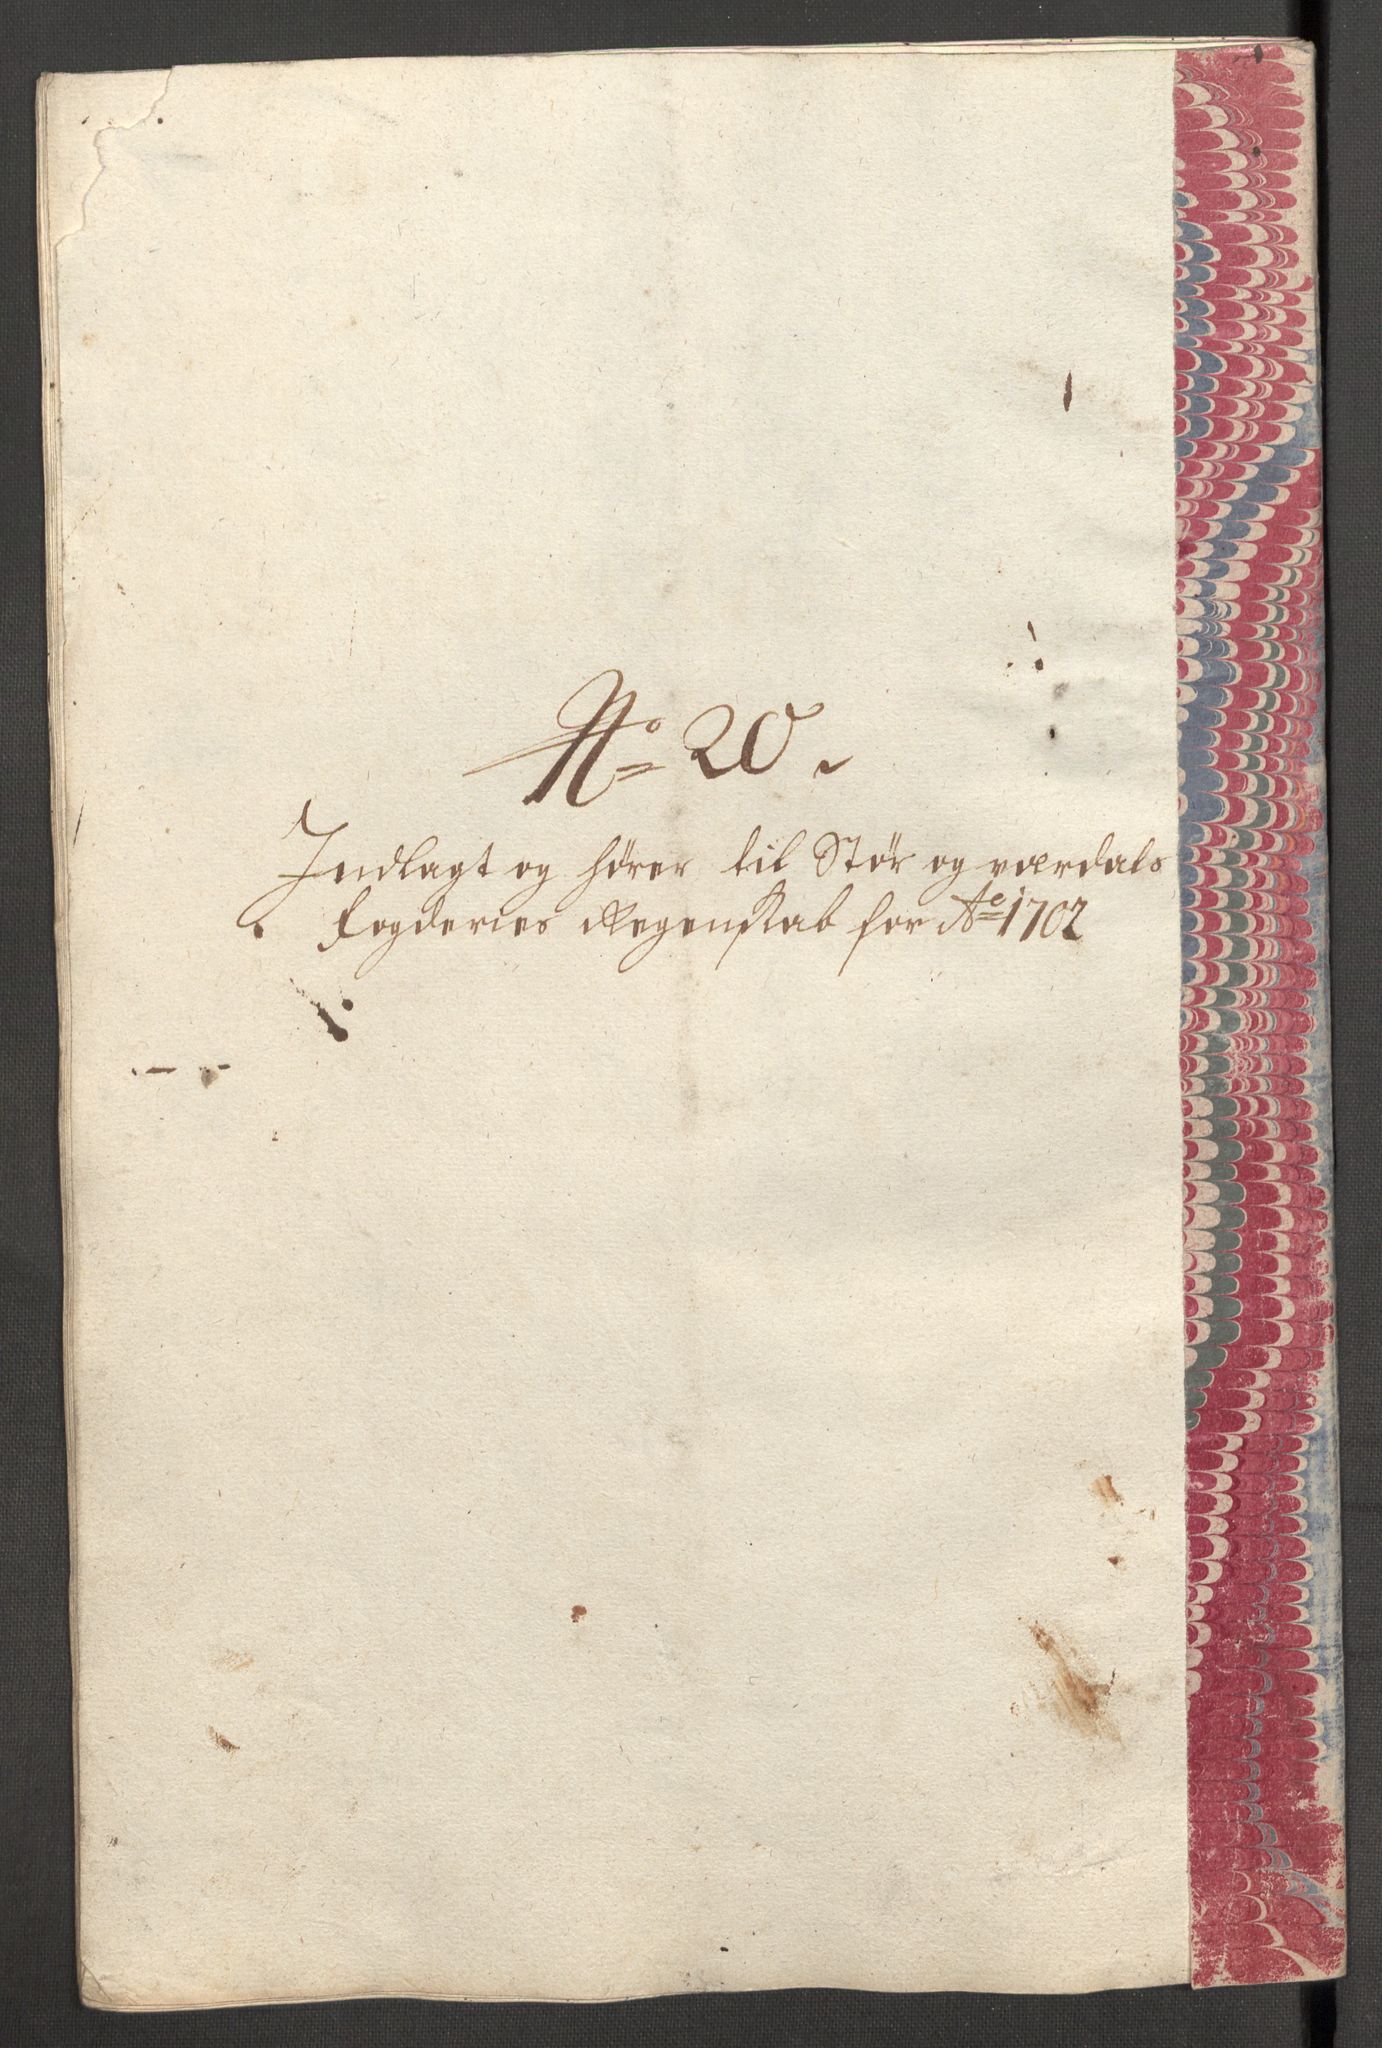 No 20.
Indlagt og hører til Stør og værdals
Fogderies Regenskab for Ao 1702